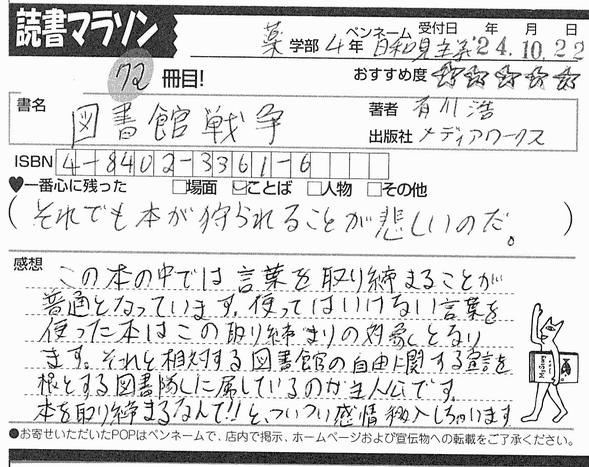 読書マラソン
薬 学部 4 年 ペンネーム 日和見主義 受付日 '24 年 10 月 22 日
72 冊目! おすすめ度 ☆☆☆☆☆
書名 図書館戦争 著者 有川 浩
出版社 メディアワークス
ISBN 4-8402-3361-6
♥一番心に残った □場面 ☑ことば □人物 □その他
( それでも本が狩られることが悲しいのだ。 )
感想
この本の中では言葉を取り締まることが
普通となっています。使ってはいけない言葉を
使った本はこの取り締まりの対象となり
ます。それと相対する図書館の自由に関する宣言を
根とする図書隊に属しているのが主人公です。
本を取り締まるなんて!! と、ついつい感情移入しちゃいます
●お寄せいただいたPOPはペンネームで、店内で掲示、ホームページおよび宣伝物への転載をご了承ください。